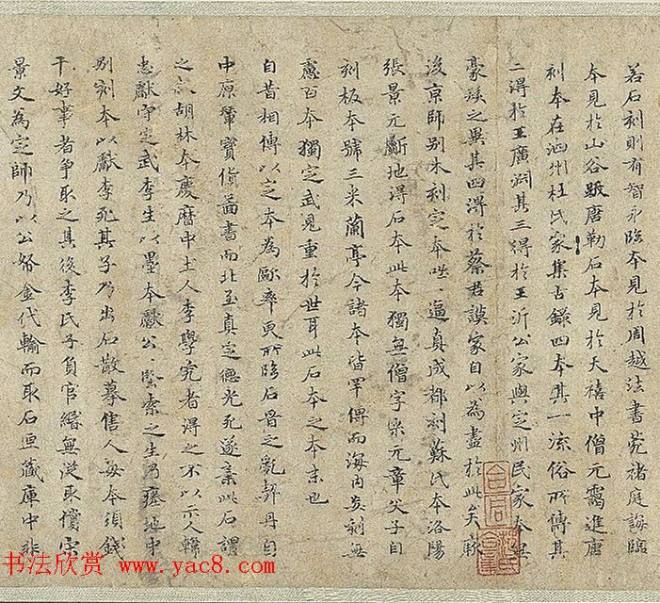 若石刻則有智永臨本見於周越法書苑褚庭誨臨
本見於山谷跋唐勒石本見於天禧中僧元靄進唐
刻本在泗州杜氏家集古錄四本其一流俗所傳其
二得於王廣淵其三得於王沂公家與定州民家本無
毫髮之異其四得於蔡君謨家自以為盡於此矣厥
後京師別木刻定本咄逼真成都刻蘇氏本洛陽
張景元斸地得石本此本獨無僧字米元章父子自
刻板本號三米蘭亭今諸本皆罕傳而海內妄刻無
慮百本獨定武見重於世耳此石本之本末也
自昔相傳以定本為歐率更所臨石晉之亂契丹自
中原輦寶貨圖書而北至真定德光死遂棄此石謂
之胡林本慶曆中土人李學究者得之不以示人韓
忠獻守定武李生以墨本獻公堅索之生乃瘞地中
別刻本以獻李死其子乃出石散摹售人每本須錢
千好事者爭取之其後李氏子負官緡無從取償宋
景文為定師乃以公帑金代輸而取石匣藏庫中非
书法欣赏 www.yac8.com